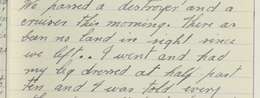 We passed a destroyer and a
cruiser this morning. There has
been no land in sight since
we left.. I went and had
my leg dressed at half past
ten and I was told every